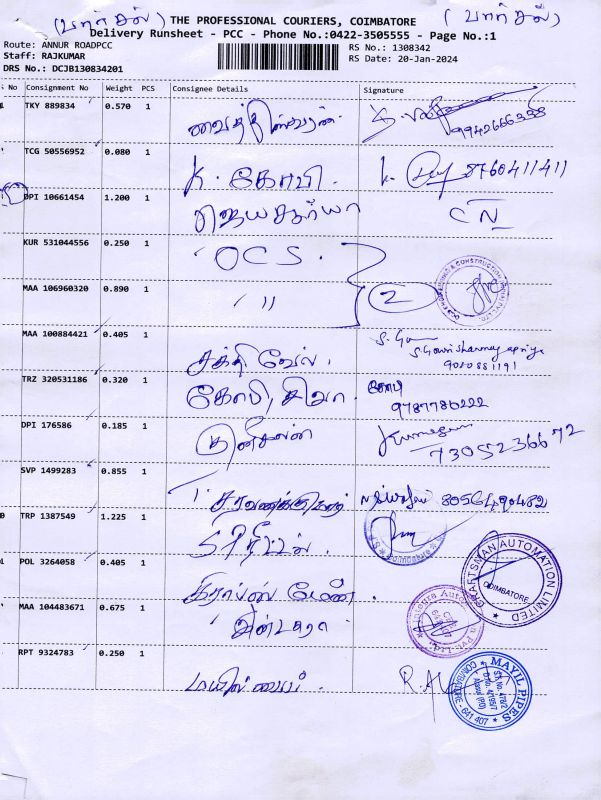 (பார்சல்) THE PROFESSIONAL COURIERS, COIMBATORE (பார்சல்)
Delivery Runsheet - PCC - Phone No.:0422-3505555 - Page No.:1
Route: ANNUR ROADPCC RS No.: 1308342
Staff: RAJKUMAR RS Date: 20-Jan-2024
DRS No.: DCJB130834201
S No Consignment No Weight PCS Consignee Details Signature
TKY 889834 0.570 1 9942666358
TCG 50556952 0.080 1 K. கோபி. K. 8760411411
DPI 10661454 1.200 1 ஜெயசூர்யா
KUR 531044556 0.250 1 OCS.
MAA 106960320 0.890 1 " 2
MAA 100884421 0.405 1 சக்தி வேல். S. Gowrishanmugapriya
9080881191
TRZ 320531186 0.320 1 கோபி, சிவா. கோபி
9787786222
DPI 176586 0.185 1 முனீஸ்வரன் 7305236672
SVP 1499283 0.855 1 சரவணக்குமார் 8056490482
TRP 1387549 1.225 1
POL 3264058 0.405 1 CRAFTSMAN AUTOMATION LIMITED
COIMBATORE
MAA 104483671 0.675 1
RPT 9324783 0.250 1 மயில் பைப். MAYIL PIPES
COIMBATORE 641 407